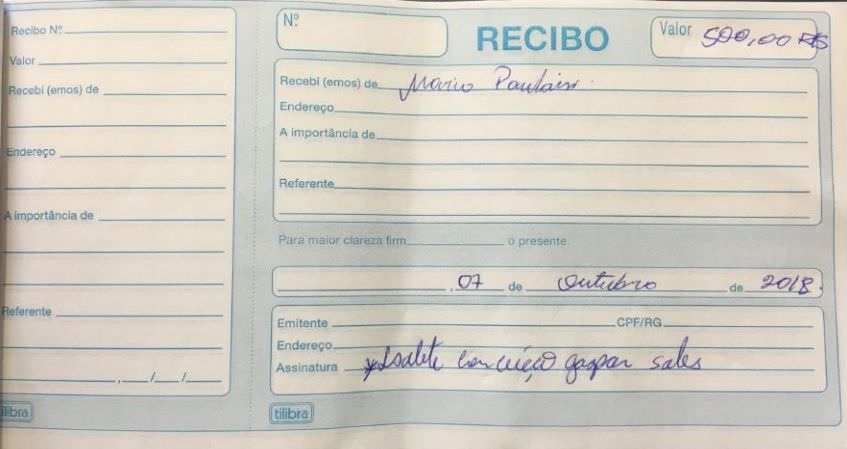 Recibo Nº
Valor
Recebi (emos) de
Endereço
A importância de
Referente
, / /
tilibra
Nº
RECIBO
Valor 500,00 R$
Recebi (emos) de Mario
Endereço
A importância de
Referente
Para maior clareza firm o presente.
07 de Outubro de 2018.
Emitente CPF/RG
Endereço
Assinatura gaspar sales
tilibra